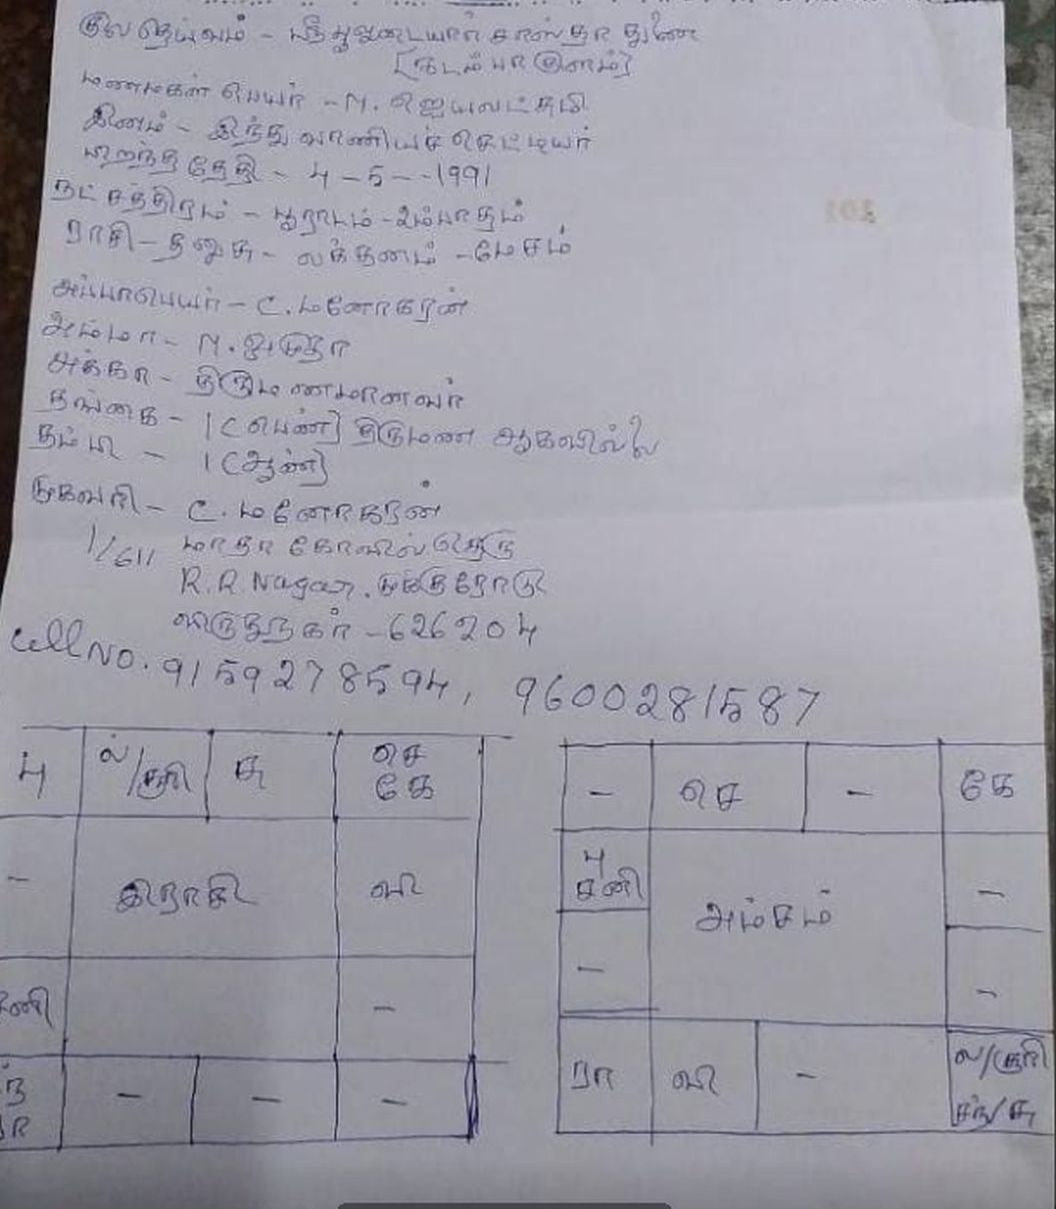 குல தெய்வம் - ஸ்ரீ பூலுடையார் சாஸ்தா துணை
[கடம்பாகுளம்]
மணமகள் பெயர் - M. ஜெயலட்சுமி
இனம் - இந்து வாணியச் செட்டியர்
பிறந்த தேதி - 4 - 5 - - 1991
நட்சத்திரம் - பூராடம் - 2ம்பாதம்
ராசி - தனுசு - லக்கனம் - மேசம்
அப்பாபெயர் - C. மனோகரன்
அம்மா - M. அமுதா
அக்கா - திருமணமானவர்
தங்கை - 1 (பெண்) திருமண ஆகவில்லை
தம்பி - 1 (ஆண்)
முகவரி - C. மனோகரன்
1/611 மாதா கோவில் தெரு
R.R. Nagar. முக்குரோடு
விருதுநகர் - 626204
Cell No. 9159278594, 9600281587
பு ல/சூரி சு செ
கே
- இராசி வி
சனி -
ந்
ரா - - -
- செ - கே
பு
சனி அம்சம் -
- -
ரா வி - ல/சூரி
சந்/சு